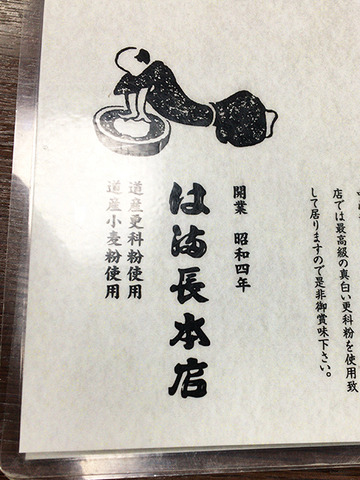 店では最高級の真白い更科粉を使用致
して居りますので是非御賞味下さい。
開業　昭和四年
はま長本店
道産更科粉使用
道産小麦粉使用